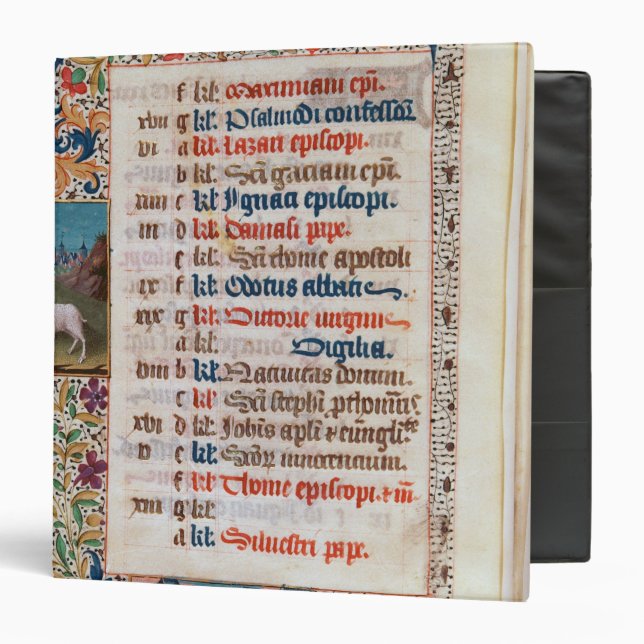 f kl. Maximiani epi.
xvii g kl. Psalmodi confessor
vi a kl. Lazari episcopi.
b kl. Sci graciani epi.
xiiii c kl. Ygnaci episcopi.
iii d kl. Damasi pape.
e kl. Sci thome apostoli
xi f kl. Odotus abbatis
xix g kl. Victorie virginis
a kl. Vigilia.
viii b kl. Nativitas domini.
c kl. Sci stephi prthomris
xvi d kl. Iohis apli et eungliste
v e kl. Scor innocencium.
f kl. Thome episcopi. et m
xiii g kl.
a kl. Silvestri pape.